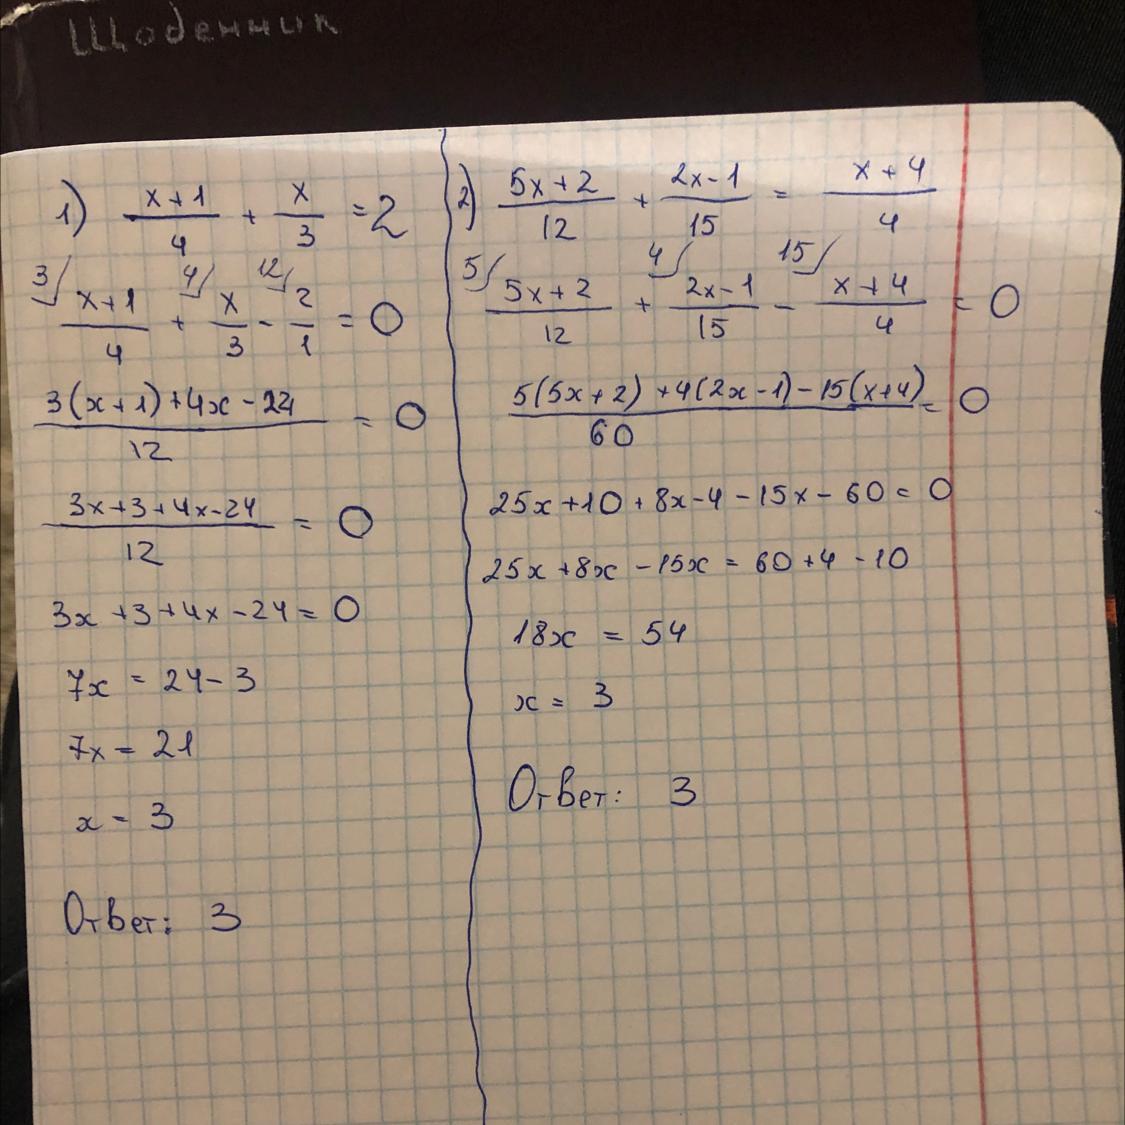 Щоденник
1) x+1/4 + x/3 = 2
3 x+1/4 + 4 x/3 - 12 2/1 = 0
3(x+1)+4x-24/12 = 0
3x+3+4x-24/12 = 0
3x+3+4x-24=0
7x = 24-3
7x = 21
x = 3
Ответ: 3
2) 5x+2/12 + 2x-1/15 = x+4/4
5 5x+2/12 + 4 2x-1/15 - 15 x+4/4 = 0
5(5x+2)+4(2x-1)-15(x+4)/60 = 0
25x+10+8x-4-15x-60=0
25x+8x-15x=60+4-10
18x = 54
x = 3
Ответ: 3